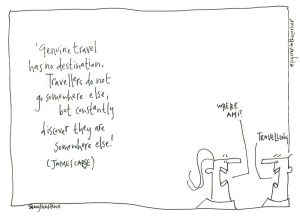 'Genuine travel
has no destination.
Travellers do not
go somewhere else,
but constantly
discover they are
somewhere else.'
(JAMES CARSE)
WHERE
AM I?
TRAVELLING